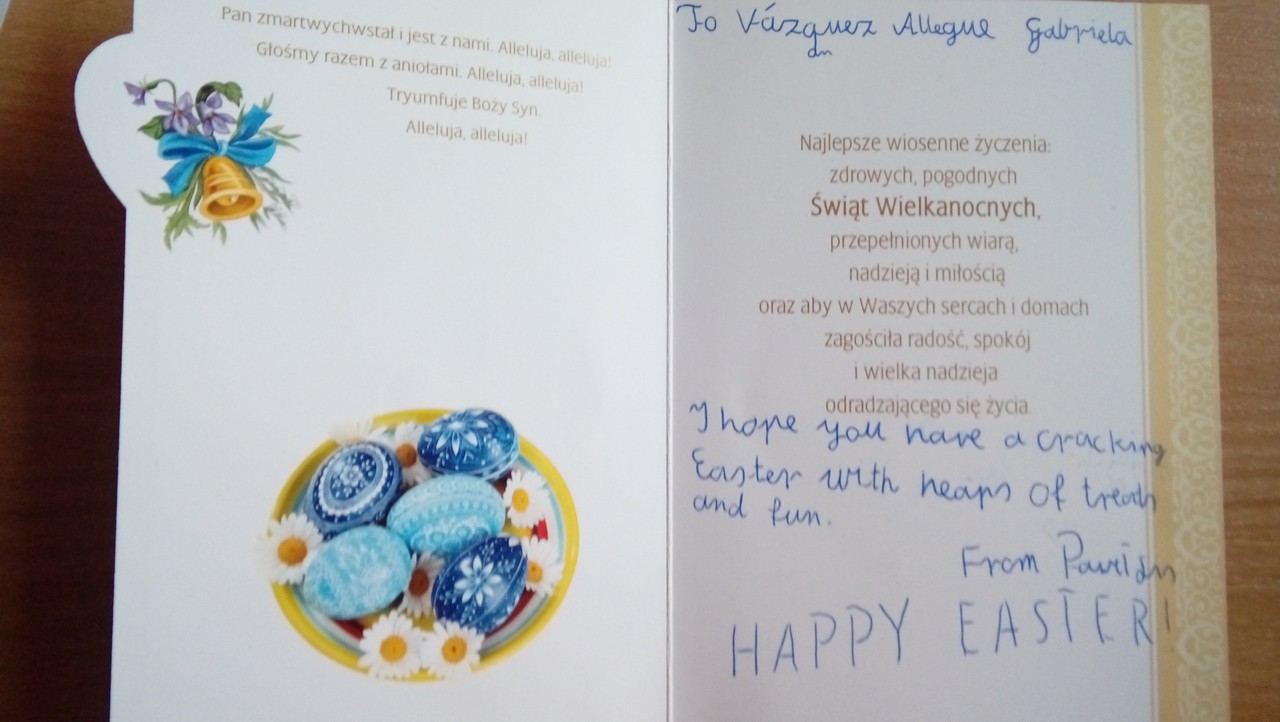 Pan zmartwychwstał i jest z nami. Alleluja, alleluja!
Głośmy razem z aniołami. Alleluja, alleluja!
Tryumfuje Boży Syn.
Alleluja, alleluja!
To Vázquez Allegue Gabriela
Najlepsze wiosenne życzenia:
zdrowych, pogodnych
Świąt Wielkanocnych,
przepełnionych wiarą,
nadzieją i miłością
oraz aby w Waszych sercach i domach
zagościła radość, spokój
i wielka nadzieja
odradzającego się życia.
I hope you have a cracking
Easter with heaps of treats
and fun.
From
HAPPY EASTER!